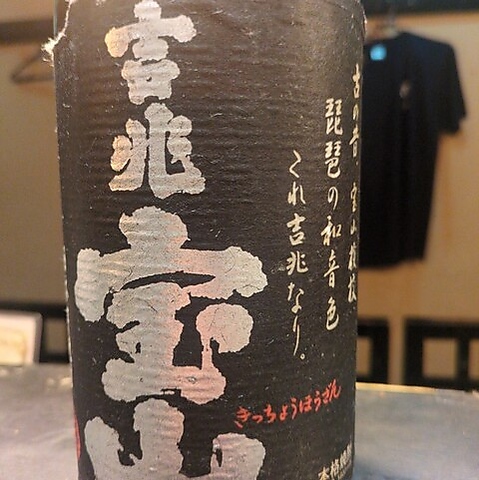 吉兆
宝山
古の昔 宝山検校
琵琶の和音色
これ吉兆なり。
きっちょうほうざん
本格焼酎